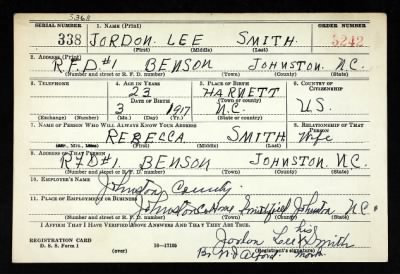 5368
SERIAL NUMBER 1. NAME (Print) ORDER NUMBER
338 JORDON LEE SMITH 5242
(First) (Middle) (Last)
2. ADDRESS (Print)
RFD#1 BENSON JOHNSTON N.C.
(Number and street or R. F. D. number) (Town) (County) (State)
3. TELEPHONE 4. AGE IN YEARS 5. PLACE OF BIRTH 6. COUNTRY OF CITIZENSHIP
23 HARNETT
DATE OF BIRTH (Town or county)
3 1917 N.C. U.S.
(Exchange) (Number) (Mo.) (Day) (Yr.) (State or country)
7. NAME OF PERSON WHO WILL ALWAYS KNOW YOUR ADDRESS 8. RELATIONSHIP OF THAT PERSON
REBECCA SMITH Wife
(Mr., Mrs., Miss) (First) (Middle) (Last)
9. ADDRESS OF THAT PERSON
RFD#1 BENSON JOHNSTON N.C.
(Number and street or R. F. D. number) (Town) (County) (State)
10. EMPLOYER'S NAME
Johnston County
11. PLACE OF EMPLOYMENT OR BUSINESS
Johnston Co Home Smithfield Johnston N.C.
(Number and street or R. F. D. number) (Town) (County) (State)
I AFFIRM THAT I HAVE VERIFIED ABOVE ANSWERS AND THAT THEY ARE TRUE.
his
REGISTRATION CARD Jordon Lee X Smith
D. S. S. Form 1 (over) 16—17105 (Registrant's signature)
Alford mark